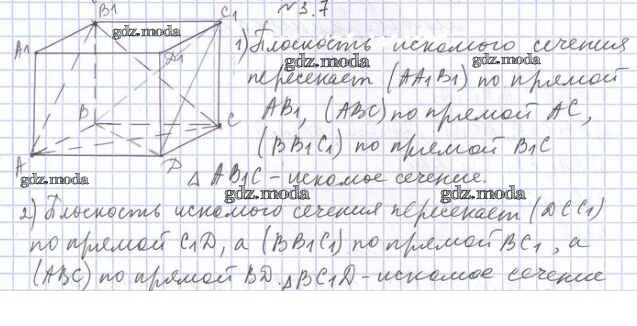 №3.7
B1
C1
gdz.moda
A1
D1
1) Плоскость искомого сечения
gdz.moda
gdz.moda
пересекает (AA1B1) по прямой
AB1, (ABC) по прямой AC,
B
C
(BB1C1) по прямой B1C
A
D
gdz.moda
△ AB1C – искомое сечение.
gdz.moda
gdz.moda
2) Плоскость искомого сечения пересекает (DCC1)
по прямой C1D, а (BB1C1) по прямой BC1, а
(ABC) по прямой BD. △BC1D – искомое сечение